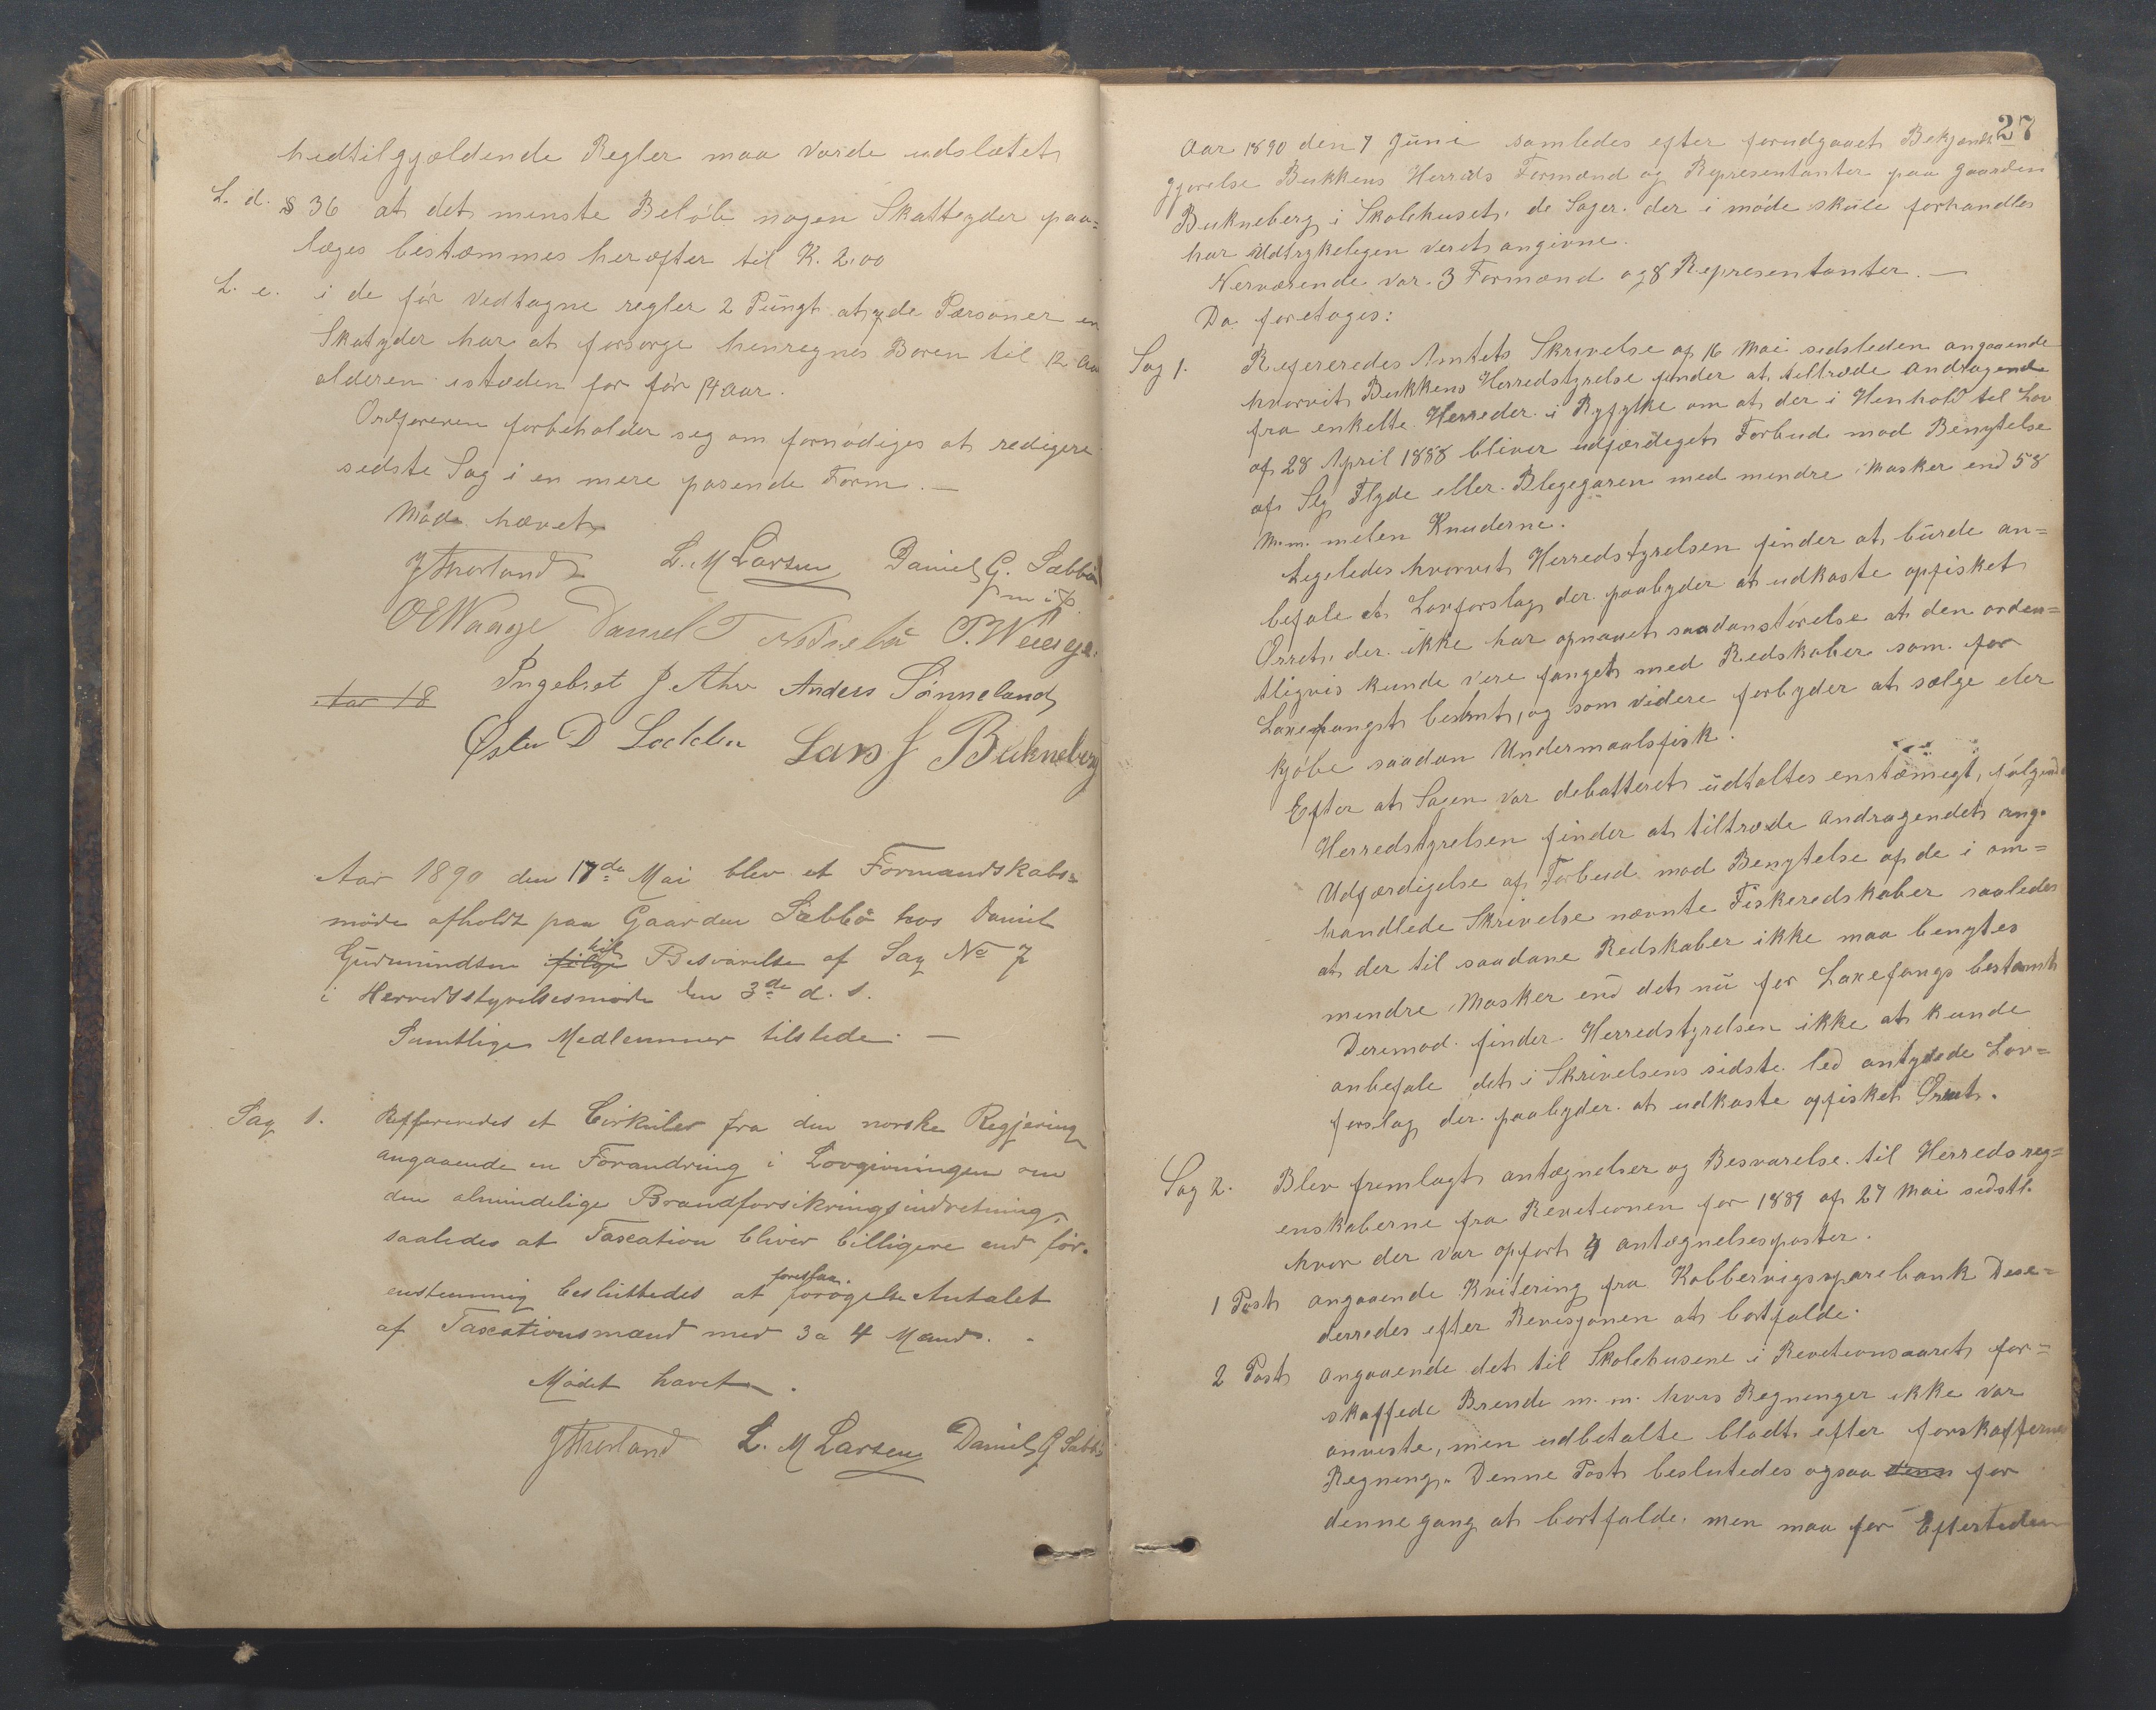 hedtilgjældende Regler maa vorde udslætet
L. d. § 36 at det minste Beløb nogen Skatteyder paa=
læges bestæmmes heræfter til K. 2.00
L. e. i de før vedtagne regler 2 Pungt at de Pærsoner en
Skatyder har at forsorge henregnes Boren til 12 Aa
alderen istæden for før 14 aar.
Ordføreren forbeholder seg om fornødiges at redigere
sidste Sag i en mere pasende Form. —
Møde hævet
L. M Larsen Daniel G. Sæbbø
O E Waage Daniel T P. Waage.
Ingebret J Anders Sønneland
Aar 18
Østen D Lars J Bukneberg
Aar 1890 den 17de Mai blev et Formandskabs=
møde afholdt paa Gaarden Sæbbø hos Daniel
Gudmundsen følge til Besvarelse af Sag No 7
i Herredsstyrelsesmøde den 3de d. s.
Samtlige Medlemmer tilstede. —
Sag 1. Refferveredes et Cirkulær fra den norske Regjæring
angaaende en Forandring i Lovgivningen om
den almindelige Brandforsikringsindretning,
saaledes at Taxation bliver billigere end før.
enstemmig besluttedes at foreslaa forøgelse Antalet
af Taxationsmænd med 3 a 4 Mand. -
Mødet hævet.
L. M Larsen Daniel G Sæbbø
27
Aar 1890 den 7 Juni samledes efter forudgaaet Bekjendt
gjørelse Bukkens Herreds Formænd og Representanter paa gaarden
Bukneberg i Skolehuset. de Sager der i møde skule forhandles
har Udtrykelegen veret angivne.
Nerværende var 3 Formænd og 8 Representanter. —
Da foretoges:
Sag 1. Refereredes Amtets Skrivelse af 16 Mai sidsleden angaaende
hvorvit Bukkens Herredstyrelse finder at tiltræde andragende
fra enkelte Herreder i Ryfylke om at der i Henhold til Lov
af 28 April 1888 bliver udfærdiget Forbud mod Benytelse
af Sey Flyde eller Blegegaren med mindre Masker end 58
m.m. melen Knuderne.
Legeledes hvorvit Herredstyrelsen finder at burde an=
befale et Lovforslag der paabyder at udkaste opfisket
Ørret, der ikke har opnaaet saadanstørelse at den orden=
tligvis kunde vere fanget med Redskaber som for
Laxefangst bestemt, og som videre forbyder at sælge eler
kjøbe saadan Undermaalsfisk.
Efter at Sagen var debatteret udtaltes enstæmegt, følgende
Herredstyrelsen finder at tiltræde Andragendet ang.
Udfærdigelse af Forbud mod Benytelse af de i om=
handlede Skrivelse nævnte Fiskeredskaber saaledes
at der til saadane Redskaber ikke maa benytes
mindre Masker end det nu for Laxefangs bestæmt
Deremod finder Herredstyrelsen ikke at kunde
anbefale det i Skrivelsens sidste led antydede Lov=
forslag der paabyder at udkaste opfisket Ørret.
Sag 2. Blev fremlagt antægnelser og Besvarelse til Herredsreg=
enskaberne fra Revetionen for 1889 af 27 Mai sidstl.
hvor der var opført 4 antægnelsesposter.
1 Post angaaende Kvitering fra Kobbervigssparebank Dese=
derredes efter Revisjonen at bortfalde.
2 Post Angaaende det til Skolehusene i Revetionsaaret for=
skaffede Brende m. m. hvis Regninger ikke var
anviste, men udbetalte blodt efter forskafferens
Regning. Denne Post beslutedes ogsaa denn for
denne gang at bortfalde, men maa for Eftertiden